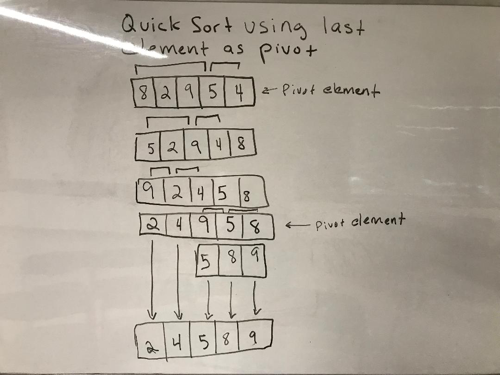 Quick Sort using last
Element as pivot
8 2 9 5 4 ← Pivot element
5 2 9 4 8
9 2 4 5 8
2 4 9 5 8 ← Pivot element
5 8 9
2 4 5 8 9